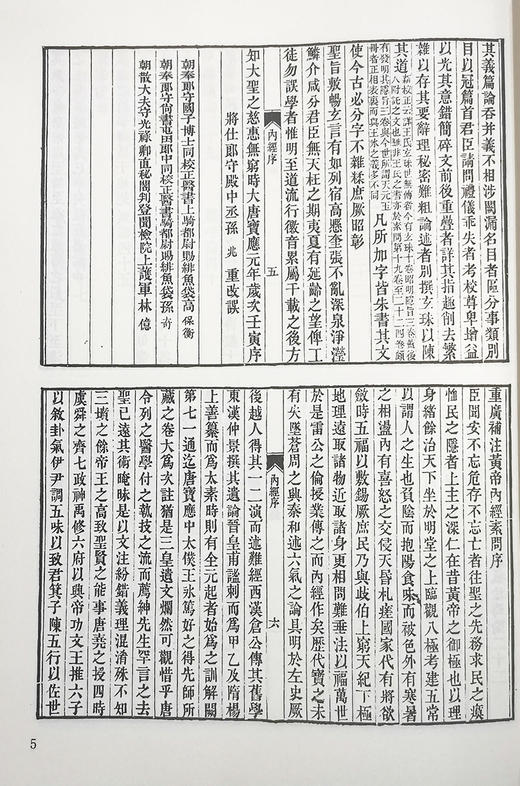 其義篇論吞并義不相涉闕漏名目者區分事類別
目以冠篇首君臣請問禮儀乖失者考校尊卑增益
以光其意錯簡碎文前後重疊者詳其指趣削去繁
雜以存其要辭理秘密難粗論述者別撰玄珠以陳
其道新校正云詳王氏玄珠世無傳者今有玄珠十卷昭明隱旨三卷蓋後人附託之文也雖非王氏之書亦於素問第十九卷至二十二四卷頗有發明其隱旨三卷與今世所謂天元玉冊者正相表裏而與王冰之義多不同凡所加字皆朱書其文
使今古必分字不雜糅庶厥昭彰
聖旨敷暢玄言有如列宿高懸奎張不亂深泉淨瀅
鱗介咸分君臣無夭枉之期夷夏有延齡之望俾工
徒勿誤學者惟明至道流行徽音累屬千載之後方
知大聖之慈惠無窮時大唐寶應元年歲次壬寅序
將仕郎守殿中丞孫 兆 重改誤
朝奉郎守國子博士同校正醫書上騎都尉賜緋魚袋高 保衡
朝奉郎守尚書屯田郎中同校正醫書騎都尉賜緋魚袋孫 奇
朝散大夫守光祿卿直秘閣判登聞檢院上護軍林 億
內經序
五
重廣補注黃帝內經素問序
臣聞安不忘危存不忘亡者往聖之先務求民之瘼
恤民之隱者上主之深仁在昔黃帝之御極也以理
身緒餘治天下坐於明堂之上臨觀八極考建五常
以謂人之生也負陰而抱陽食味而被色外有寒暑
之相盪內有喜怒之交侵夭昏札瘥國家代有將欲
斂時五福以敷錫厥庶民乃與歧伯上窮天紀下極
地理遠取諸物近取諸身更相問難垂法以福萬世
於是雷公之倫授業傳之而內經作矣歷代寶之未
有失墜蒼周之興秦和述六氣之論具明於左史厥
內經序
六
後越人得其一二演而述難經西漢倉公傳其舊學
東漢仲景撰其遺論晉皇甫謐刺而為甲乙及隋楊
上善纂而為太素時則有全元起者始為之訓解闕
第七一通迄唐寶應中太僕王冰篤好之得先師所
藏之卷大為次註猶是三皇遺文爛然可觀惜乎唐
令列之醫學付之執技之流而薦紳先生罕言之去
聖已遠其術晻昧是以文注紛錯義理混淆殊不知
三墳之餘帝王之高致聖賢之能事唐堯之授四時
虞舜之齊七政神禹修六府以興帝功文王推六子
以敘卦氣伊尹調五味以致君箕子陳五行以佐世
5